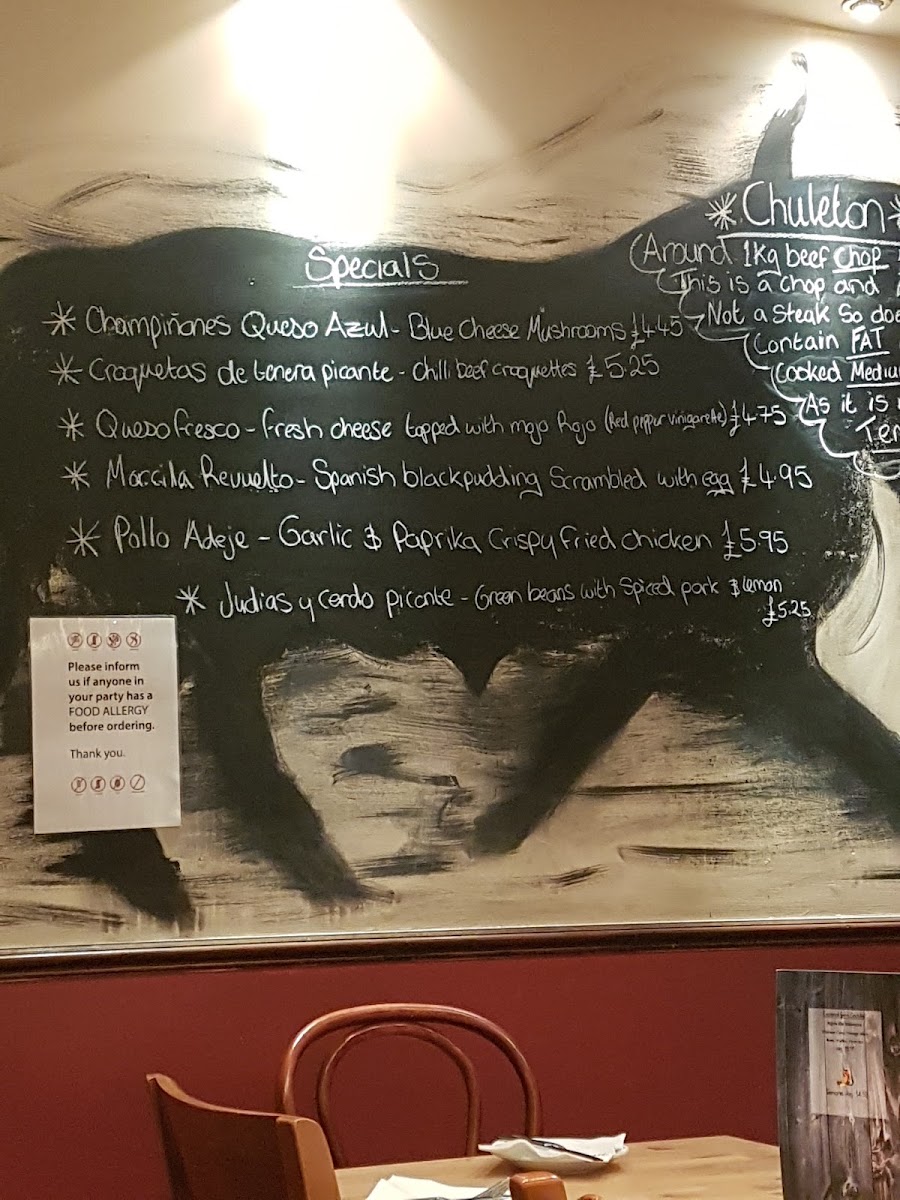 Specials
* Champiñones Queso Azul - Blue Cheese Mushrooms £4.45
* Croquetas de tenera picante - Chilli beef croquettes £5.25
* Queso fresco - fresh cheese topped with mojo Rojo (Red pepper vinigarette) £4.75
* Morcila Revuelto - Spanish blackpudding Scrambled with egg £4.95
* Pollo Adeje - Garlic & Paprika Crispy fried chicken £5.95
* Judias y cerdo picante - Green beans with Spiced pork & lemon
£5.25
* Chuleton *
(Around 1Kg beef chop
This is a chop and
Not a steak So doe
Contain FAT
Cooked Mediu
As it is
Ten
Please inform
us if anyone in
your party has a
FOOD ALLERGY
before ordering.
Thank you.